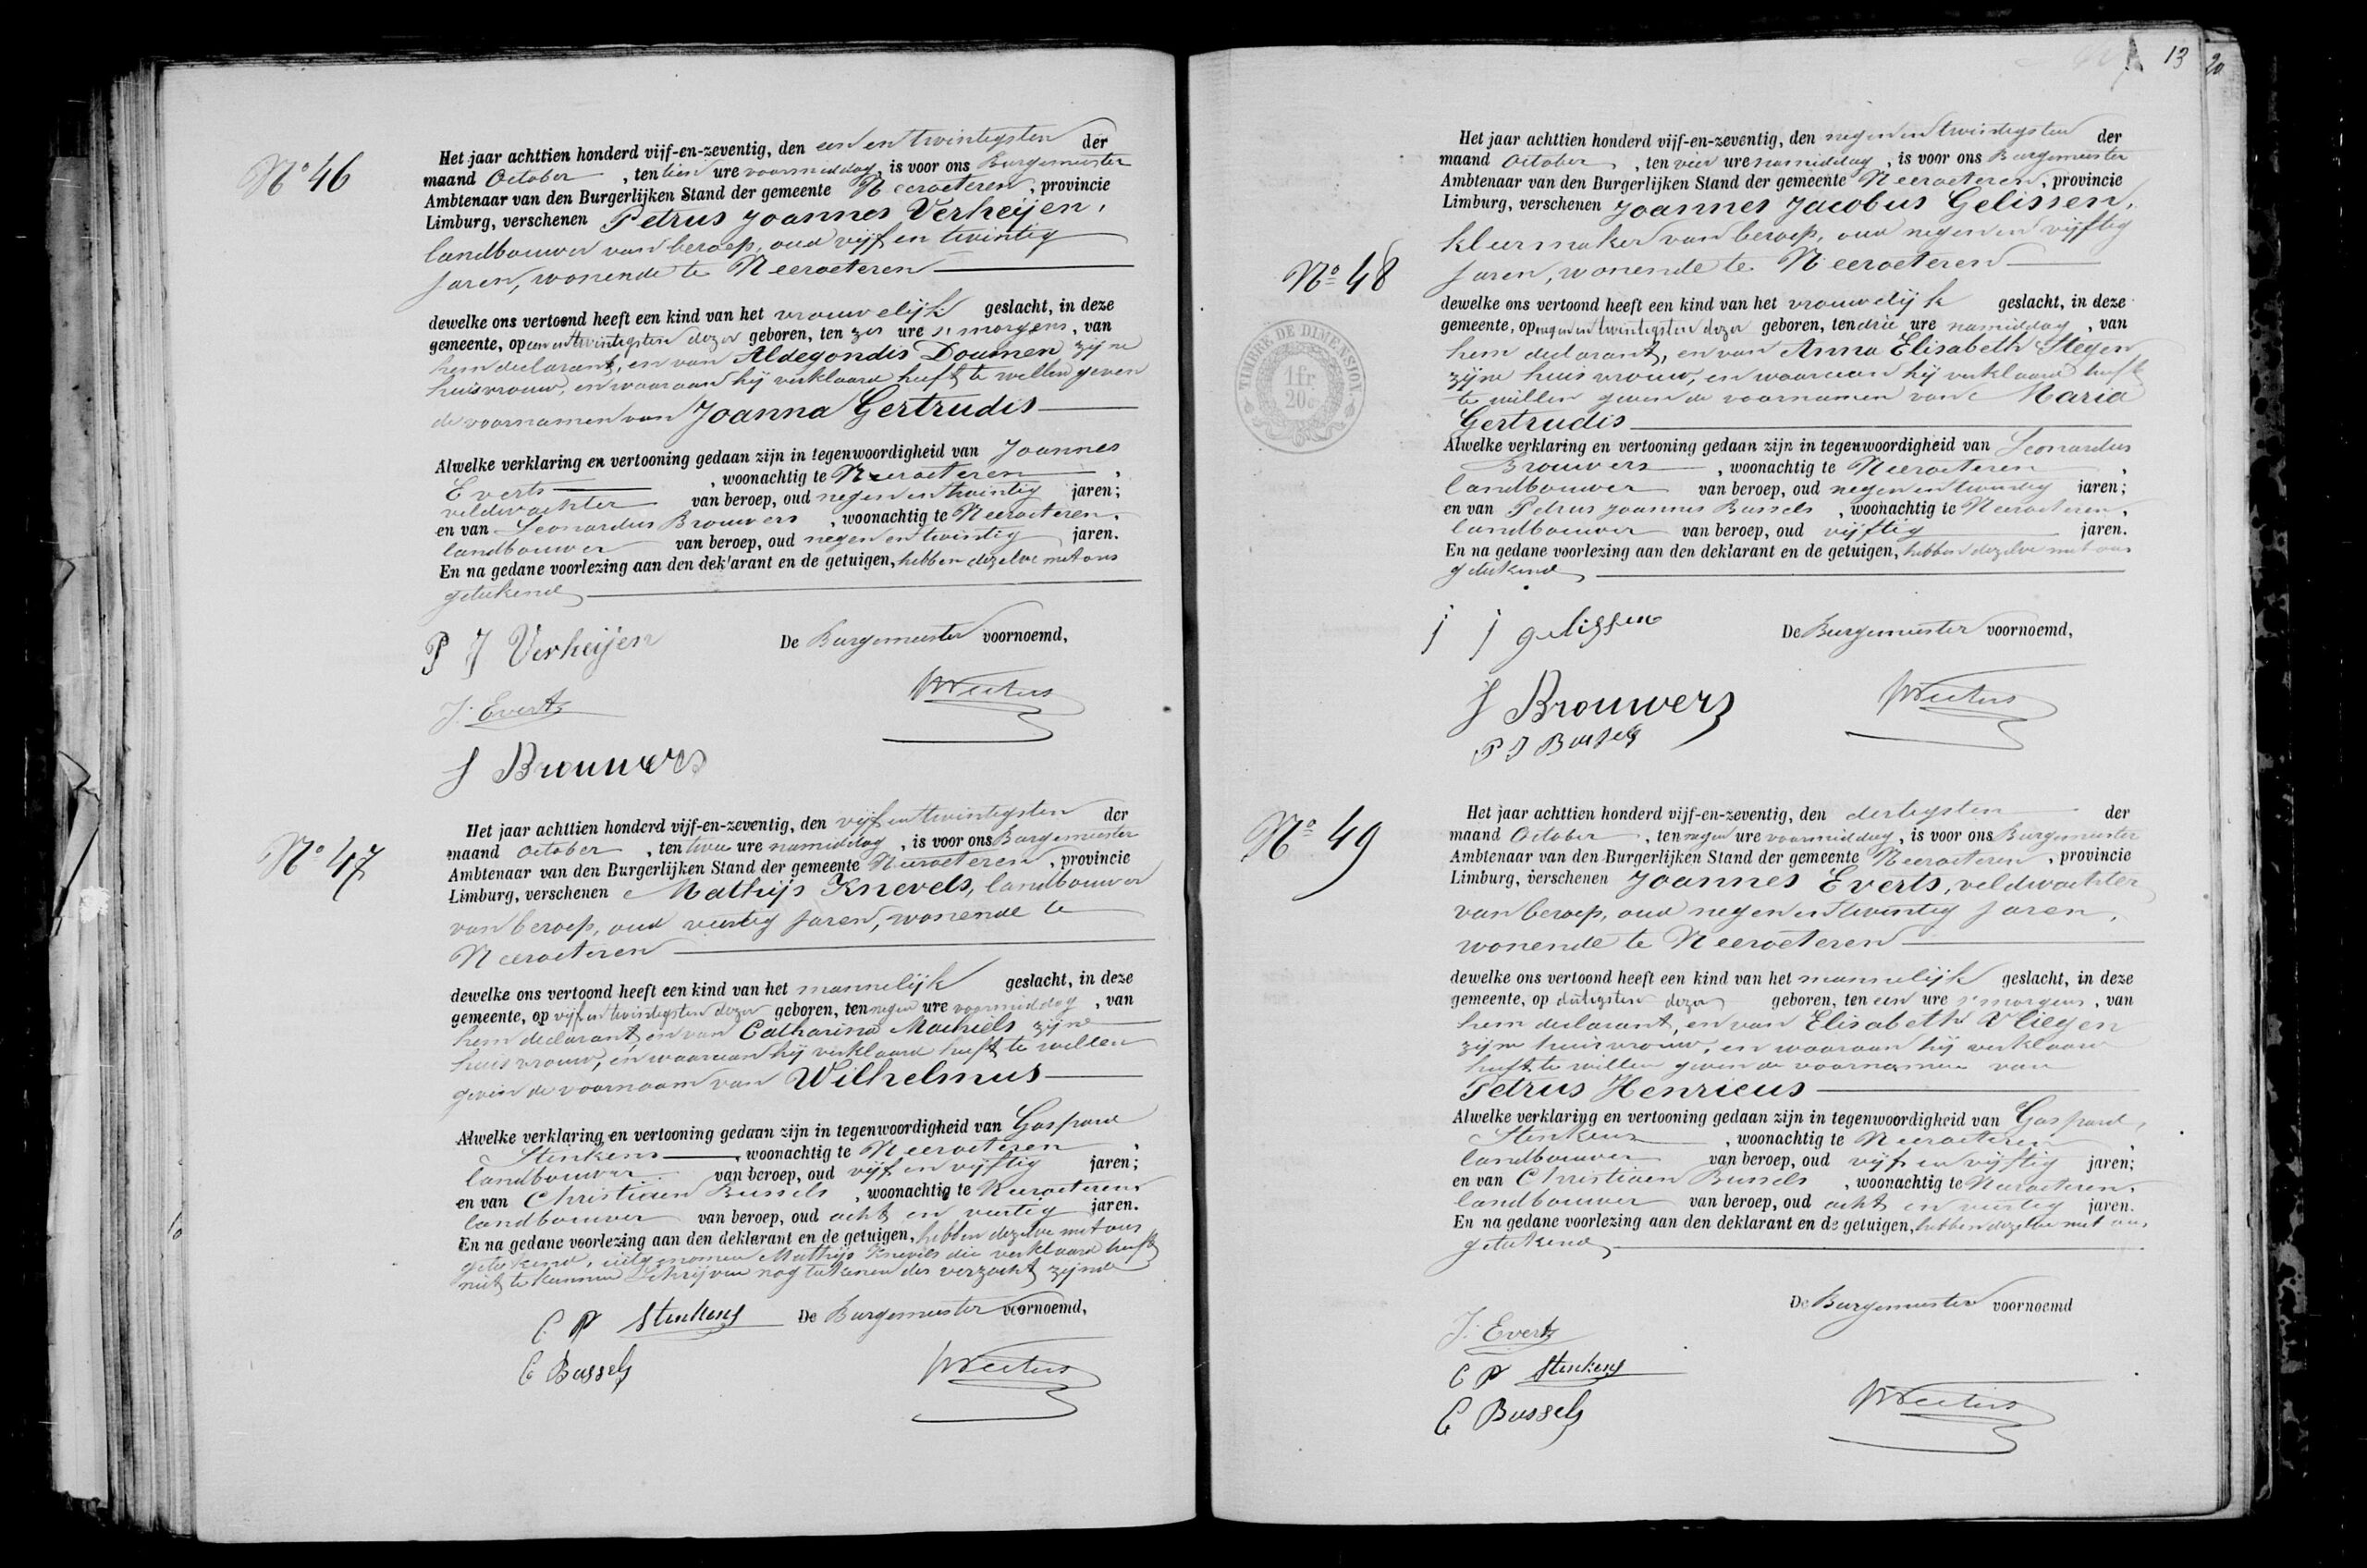 Nº 46
Het jaar achttien honderd vijf-en-zeventig, den een en twintigsten der
maand October , ten tien ure voormiddag, is voor ons Burgemeester
Ambtenaar van den Burgerlijken Stand der gemeente Neeroeteren, provincie
Limburg, verschenen Petrus Joannes Verheijen,
landbouwer van beroep, oud vijf en twintig
jaren, wonende te Neeroeteren
dewelke ons vertoond heeft een kind van het vrouwelijk geslacht, in deze
gemeente, op een en twintigsten dezer geboren, ten zes ure s'morgens, van
hem declarant, en van Aldegondis Doumen zijne
huisvrouw, en waaraan hij verklaard heeft te willen geven
de voornamen van Joanna Gertrudis
Alwelke verklaring en vertooning gedaan zijn in tegenwoordigheid van Joannes
Everts , woonachtig te Neeroeteren ,
veldwachter van beroep, oud negen en twintig jaren;
en van Leonardus Brouwers , woonachtig te Neeroeteren,
landbouwer van beroep, oud negen en twintig jaren.
En na gedane voorlezing aan den deklarant en de getuigen, hebben dezelve met ons
geteekend
P J Verheijen
De Burgemeester voornoemd,
J. Everts
J Brouwers
Nº 47
Het jaar achttien honderd vijf-en-zeventig, den vijf en twintigsten der
maand October , ten twee ure namiddag , is voor ons Burgemeester
Ambtenaar van den Burgerlijken Stand der gemeente Neeroeteren , provincie
Limburg, verschenen Mathijs Knevels, landbouwer
van beroep, oud veertig jaren, wonende te
Neeroeteren
dewelke ons vertoond heeft een kind van het mannelijk geslacht, in deze
gemeente, op vijf en twintigsten dezer geboren, ten negen ure voormiddag , van
hem declarant, en van Catharina Machiels zijne
huisvrouw, en waaraan hij verklaard heeft te willen
geven de voornaam van Wilhelmus
Alwelke verklaring en vertooning gedaan zijn in tegenwoordigheid van Gaspard
Stinkens , woonachtig te Neeroeteren ,
landbouwer van beroep, oud vijf en vijftig jaren;
en van Christiaen Bussels , woonachtig te Neeroeteren
landbouwer van beroep, oud acht en veertig jaren.
En na gedane voorlezing aan den deklarant en de getuigen, hebben dezelve met ons
geteekend, uitgenomen Mathijs Knevels die verklaard heeft
niet te kunnen schrijven nog teekenen des verzocht zijnde
C P Stinkens De Burgemeester voornoemd,
C Bussels
13
20
Nº 48
TIMBRE DE DIMENSION
1 fr.
20c
Het jaar achttien honderd vijf-en-zeventig, den negen en twintigsten der
maand October , ten vier ure namiddag , is voor ons Burgemeester
Ambtenaar van den Burgerlijken Stand der gemeente Neeroeteren, provincie
Limburg, verschenen Joannes Jacobus Gelissen,
kleermaker van beroep, oud negen en vijftig
jaren, wonende te Neeroeteren
dewelke ons vertoond heeft een kind van het vrouwelijk geslacht, in deze
gemeente, op negen en twintigsten dezer geboren, ten drie ure namiddag , van
hem declarant, en van Anna Elisabeth Stegen
zijne huisvrouw, en waaraan hij verklaard heeft
te willen geven de voornamen van Maria
Gertrudis
Alwelke verklaring en vertooning gedaan zijn in tegenwoordigheid van Leonardus
Brouwers , woonachtig te Neeroeteren ,
landbouwer van beroep, oud negen en twintig jaren;
en van Petrus Joannes Bussels , woonachtig te Neeroeteren,
landbouwer van beroep, oud vijftig jaren.
En na gedane voorlezing aan den deklarant en de getuigen, hebben dezelve met ons
geteekend
j j gelissen
De Burgemeester voornoemd,
J Brouwers
P J Bussels
Nº 49
Het jaar achttien honderd vijf-en-zeventig, den dertigsten der
maand October , ten negen ure voormiddag , is voor ons Burgemeester
Ambtenaar van den Burgerlijken Stand der gemeente Neeroeteren , provincie
Limburg, verschenen Joannes Everts, veldwachter
van beroep, oud negen en twintig jaren,
wonende te Neeroeteren
dewelke ons vertoond heeft een kind van het mannelijk geslacht, in deze
gemeente, op dertigsten dezer geboren, ten een ure s'morgens , van
hem declarant, en van Elisabeth Vliegen
zijne huisvrouw, en waaraan hij verklaard
heeft te willen geven de voornamen van
Petrus Henricus
Alwelke verklaring en vertooning gedaan zijn in tegenwoordigheid van Gaspard
Stinkens , woonachtig te Neeroeteren ,
landbouwer van beroep, oud vijf en vijftig jaren;
en van Christiaen Bussels , woonachtig te Neeroeteren,
landbouwer van beroep, oud acht en veertig jaren.
En na gedane voorlezing aan den deklarant en de getuigen, hebben dezelve met ons
geteekend
De Burgemeester voornoemd
J. Everts
C P Stinkens
C Bussels